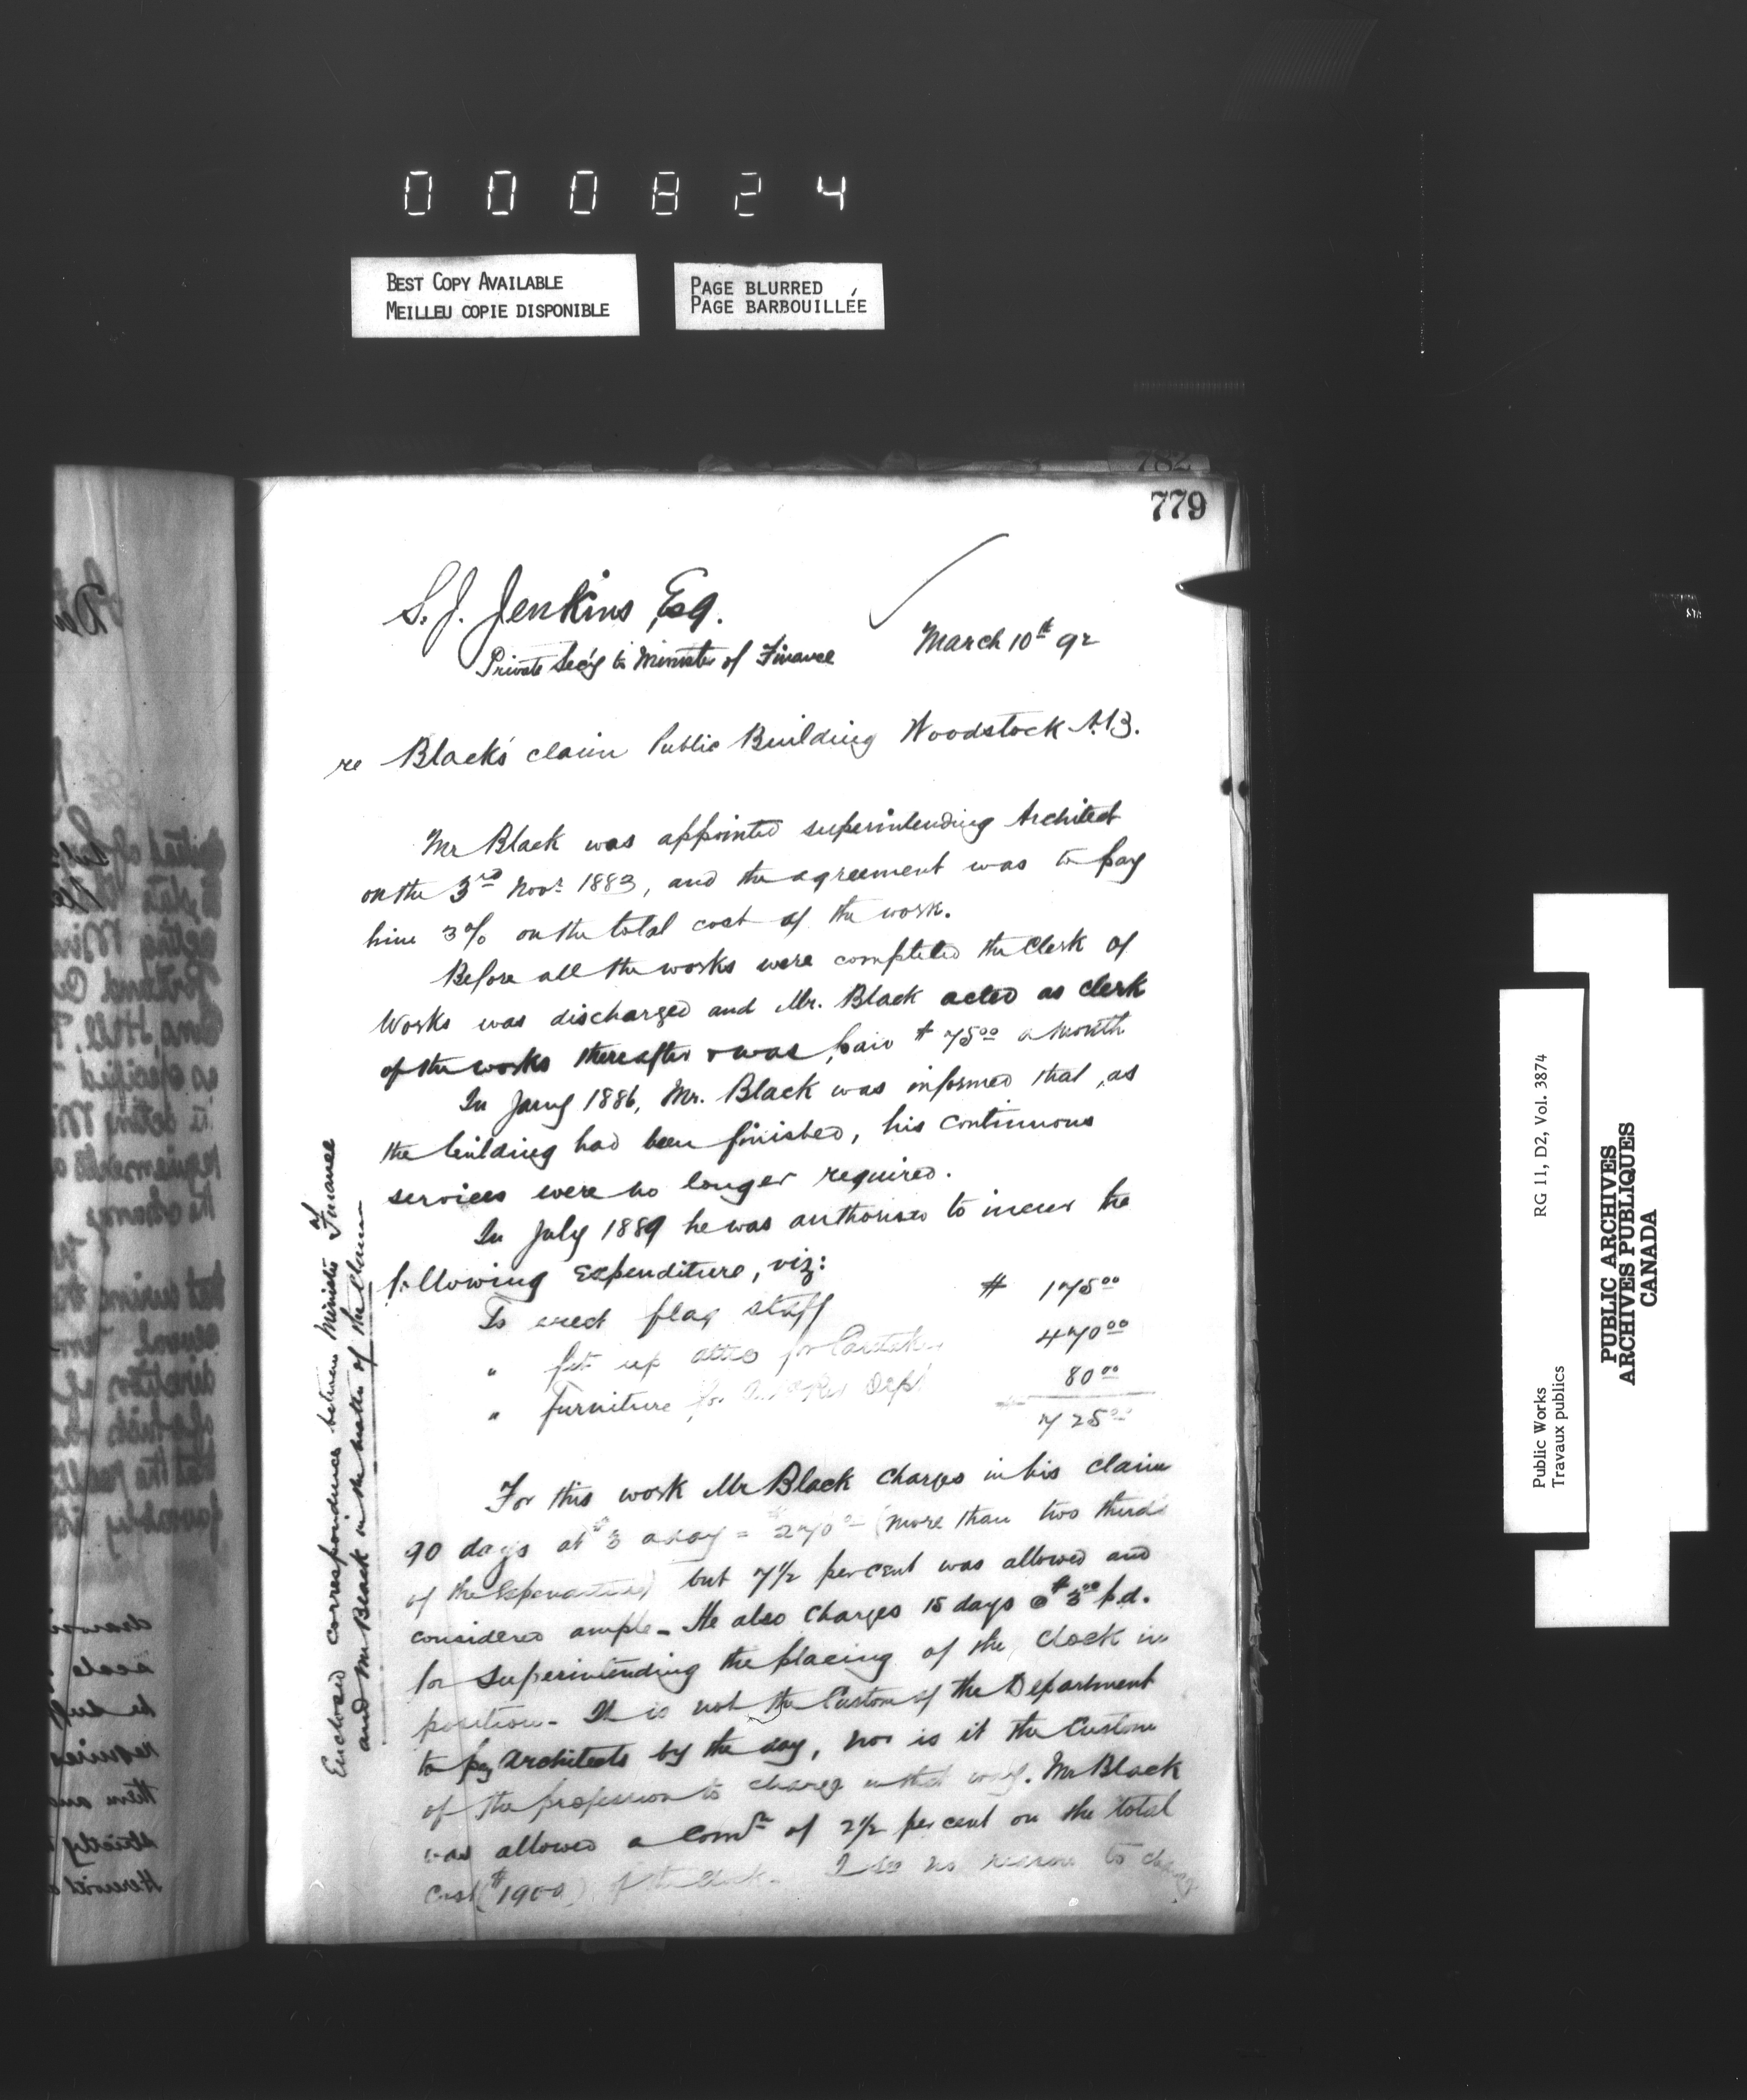 000824
BEST COPY AVAILABLE
MEILLEU COPIE DISPONIBLE
PAGE BLURRED
PAGE BARBOUILLÉE
782
779
S. J. Jenkins, Esq.
March 10th 92
Private Sec'y to Minister of Finance
re Black's claim Public Building Woodstock N.B.
Mr Black was appointed superintending Architect
on the 3rd Novr 1883, and the agreement was to pay
him 3% on the total cost of the work.
Before all the works were completed the Clerk of
Works was discharged and Mr. Black acted as clerk
of the works thereafter & was paid $75.00 a month
In Jany 1886, Mr. Black was informed that, as
the building had been finished, his continuous
services were no longer required.
In July 1889 he was authorised to incur the
following Expenditure, viz:
To erect flag staff # 175.00
" fit up attic for Caretaker 470.00
" Furniture for Rev Dept 80.00
725.00
For this work Mr Black charges in his claim
90 days at $3 a day = $270 (more than two thirds
of the Expenditure) but 7 1/2 per cent was allowed and
considered ample - He also charges 15 days @ $3.00 p.d.
for superintending the placing of the clock in
position - It is not the Custom of the Department
to pay Architects by the day, nor is it the Custom
of the profession to charge in that way. Mr Black
was allowed a Comn of 2 1/2 per cent on the total
Cost ($1900) of the Clock - I see no reason to change
Enclosed correspondence between Minister of Finance
and Mr Black in the matter of the Claim
Public Works
Travaux publics
RG 11, D2, Vol. 3874
PUBLIC ARCHIVES
ARCHIVES PUBLIQUES
CANADA